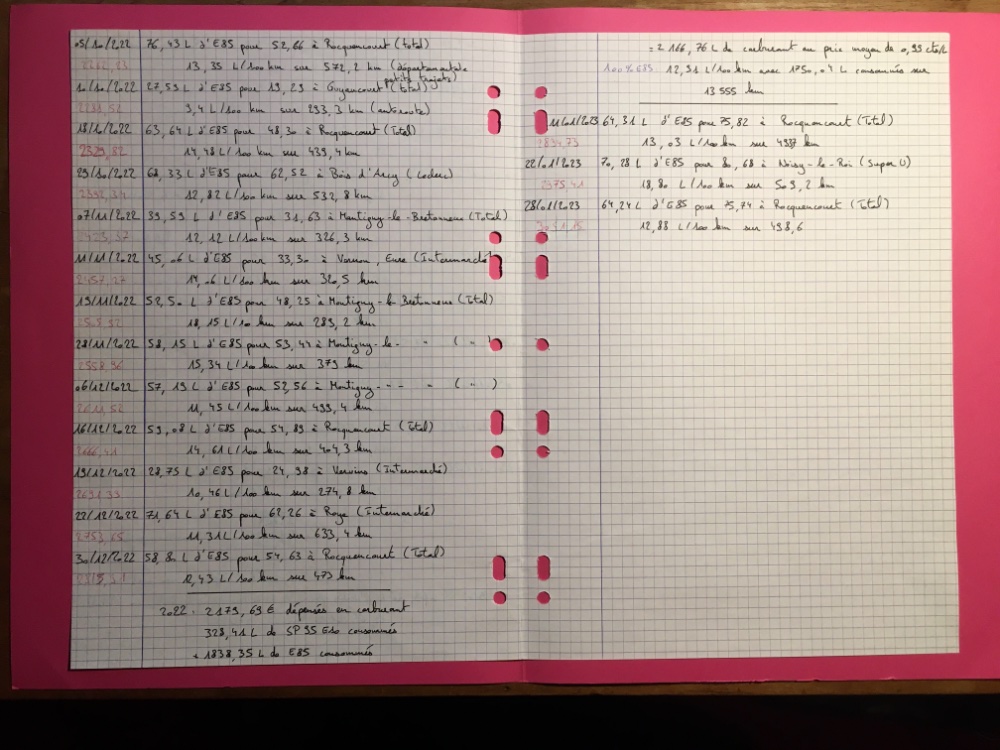 05/10/2022 76,43 L d'E85 pour 52,66 à Rocquencourt (Total)
13,35 L/100 km sur 572,2 km (départementale petits trajets)
10/10/2022 27,59 L d'E85 pour 19,29 à Guyancourt (Total)
9,4 L/100 km sur 293,3 km (autoroute)
18/10/2022 63,64 L d'E85 pour 48,30 à Rocquencourt (Total)
2329,82 14,48 L/100 km sur 439,4 km
29/10/2022 68,33 L d'E85 pour 62,52 à Bois d'Arcy (Leclerc)
2392,34 12,82 L/100 km sur 532,8 km
07/11/2022 39,59 L d'E85 pour 31,63 à Montigny-le-Bretonneux (Total)
12,12 L/100 km sur 326,3 km
11/11/2022 45,06 L d'E85 pour 33,30 à Vernon, Eure (Intermarché)
2457,27 14,06 L/100 km sur 320,5 km
19/11/2022 52,50 L d'E85 pour 48,25 à Montigny-le-Bretonneux (Total)
18,15 L/100 km sur 289,2 km
28/11/2022 58,15 L d'E85 pour 53,44 à Montigny-le- " ( " )
2558,96 15,34 L/100 km sur 379 km
06/12/2022 57,19 L d'E85 pour 52,56 à Montigny--- " ( " )
2611,52 11,45 L/100 km sur 499,4 km
16/12/2022 59,08 L d'E85 pour 54,89 à Rocquencourt (Total)
2666,41 14,61 L/100 km sur 404,3 km
19/12/2022 28,75 L d'E85 pour 24,98 à Vervins (Intermarché)
10,46 L/100 km sur 274,8 km
22/12/2022 71,64 L d'E85 pour 62,26 à Roye (Intermarché)
2753,65 11,31 L/100 km sur 633,4 km
30/12/2022 58,80 L d'E85 pour 54,63 à Rocquencourt (Total)
12,43 L/100 km sur 473 km
2022 : 2179,69 € dépensés en carburant
328,41 L de SP95 E10 consommés
+ 1838,35 L de E85 consommés
= 2166,76 L de carburant au prix moyen de 0,99 cts/L
100% E85 : 12,91 L/100 km avec 1750,04 L consommés sur
13 555 km
11/01/2023 64,31 L d'E85 pour 75,82 à Rocquencourt (Total)
13,03 L/100 km sur
22/01/2023 70,28 L d'E85 pour 80,68 à Noisy-le-Roi (Super U)
2975,41 18,80 L/100 km sur 509,2 km
28/01/2023 64,24 L d'E85 pour 75,74 à Rocquencourt (Total)
3051,15 12,88 L/100 km sur 498,6